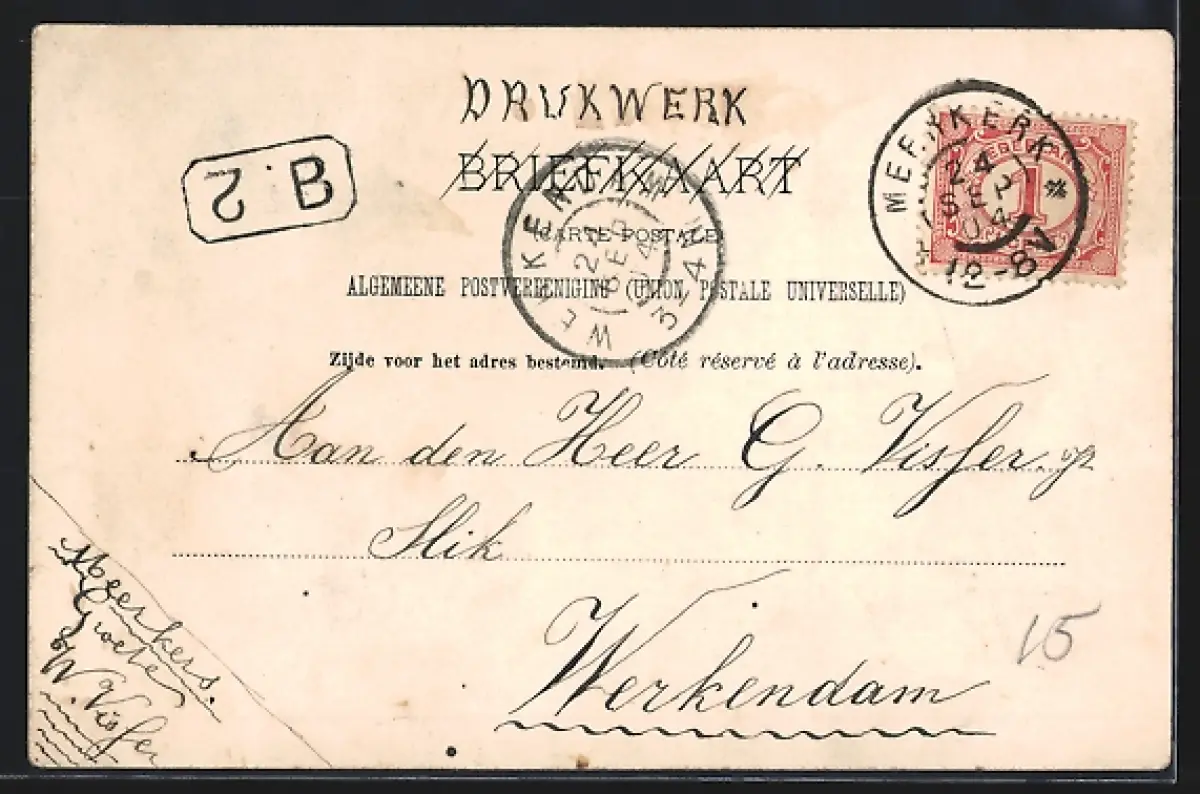 DRUKWERK
BRIEFKAART
B. 2
MEERKERK
24 SEP 04
12-8V
NEDERLAND
1
(CARTE POSTALE)
WERKENDAM
SEP 04
3-4N
ALGEMEENE POSTVEREENIGING (UNION POSTALE UNIVERSELLE)
Zijde voor het adres bestemd. (Côté réservé à l'adresse).
Aan den Heer G. Visser. op
Slik
Werkendam
15
Meerkerk.
Groeten
W. Visser